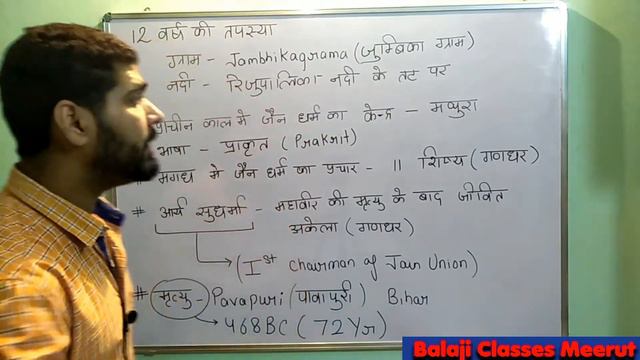 12 वर्ष की तपस्या
ग्राम - Jambhikagrama (जुम्बिका ग्राम)
नदी - रिजुपालिका नदी के तट पर
प्राचीन काल मे जैन धर्म का केन्द्र - मथुरा
भाषा - प्राकृत (Prakrit)
# मगध मे जैन धर्म का प्रचार - 11 शिष्य (गणधर)
# आर्य सुधर्मा - महावीर की मृत्यु के बाद जीवित
अकेला (गणधर)
(Ist chairman of Jain Union)
# मृत्यु - Pavapuri (पावापुरी) Bihar
468BC (72Yr)
Balaji Classes Meerut